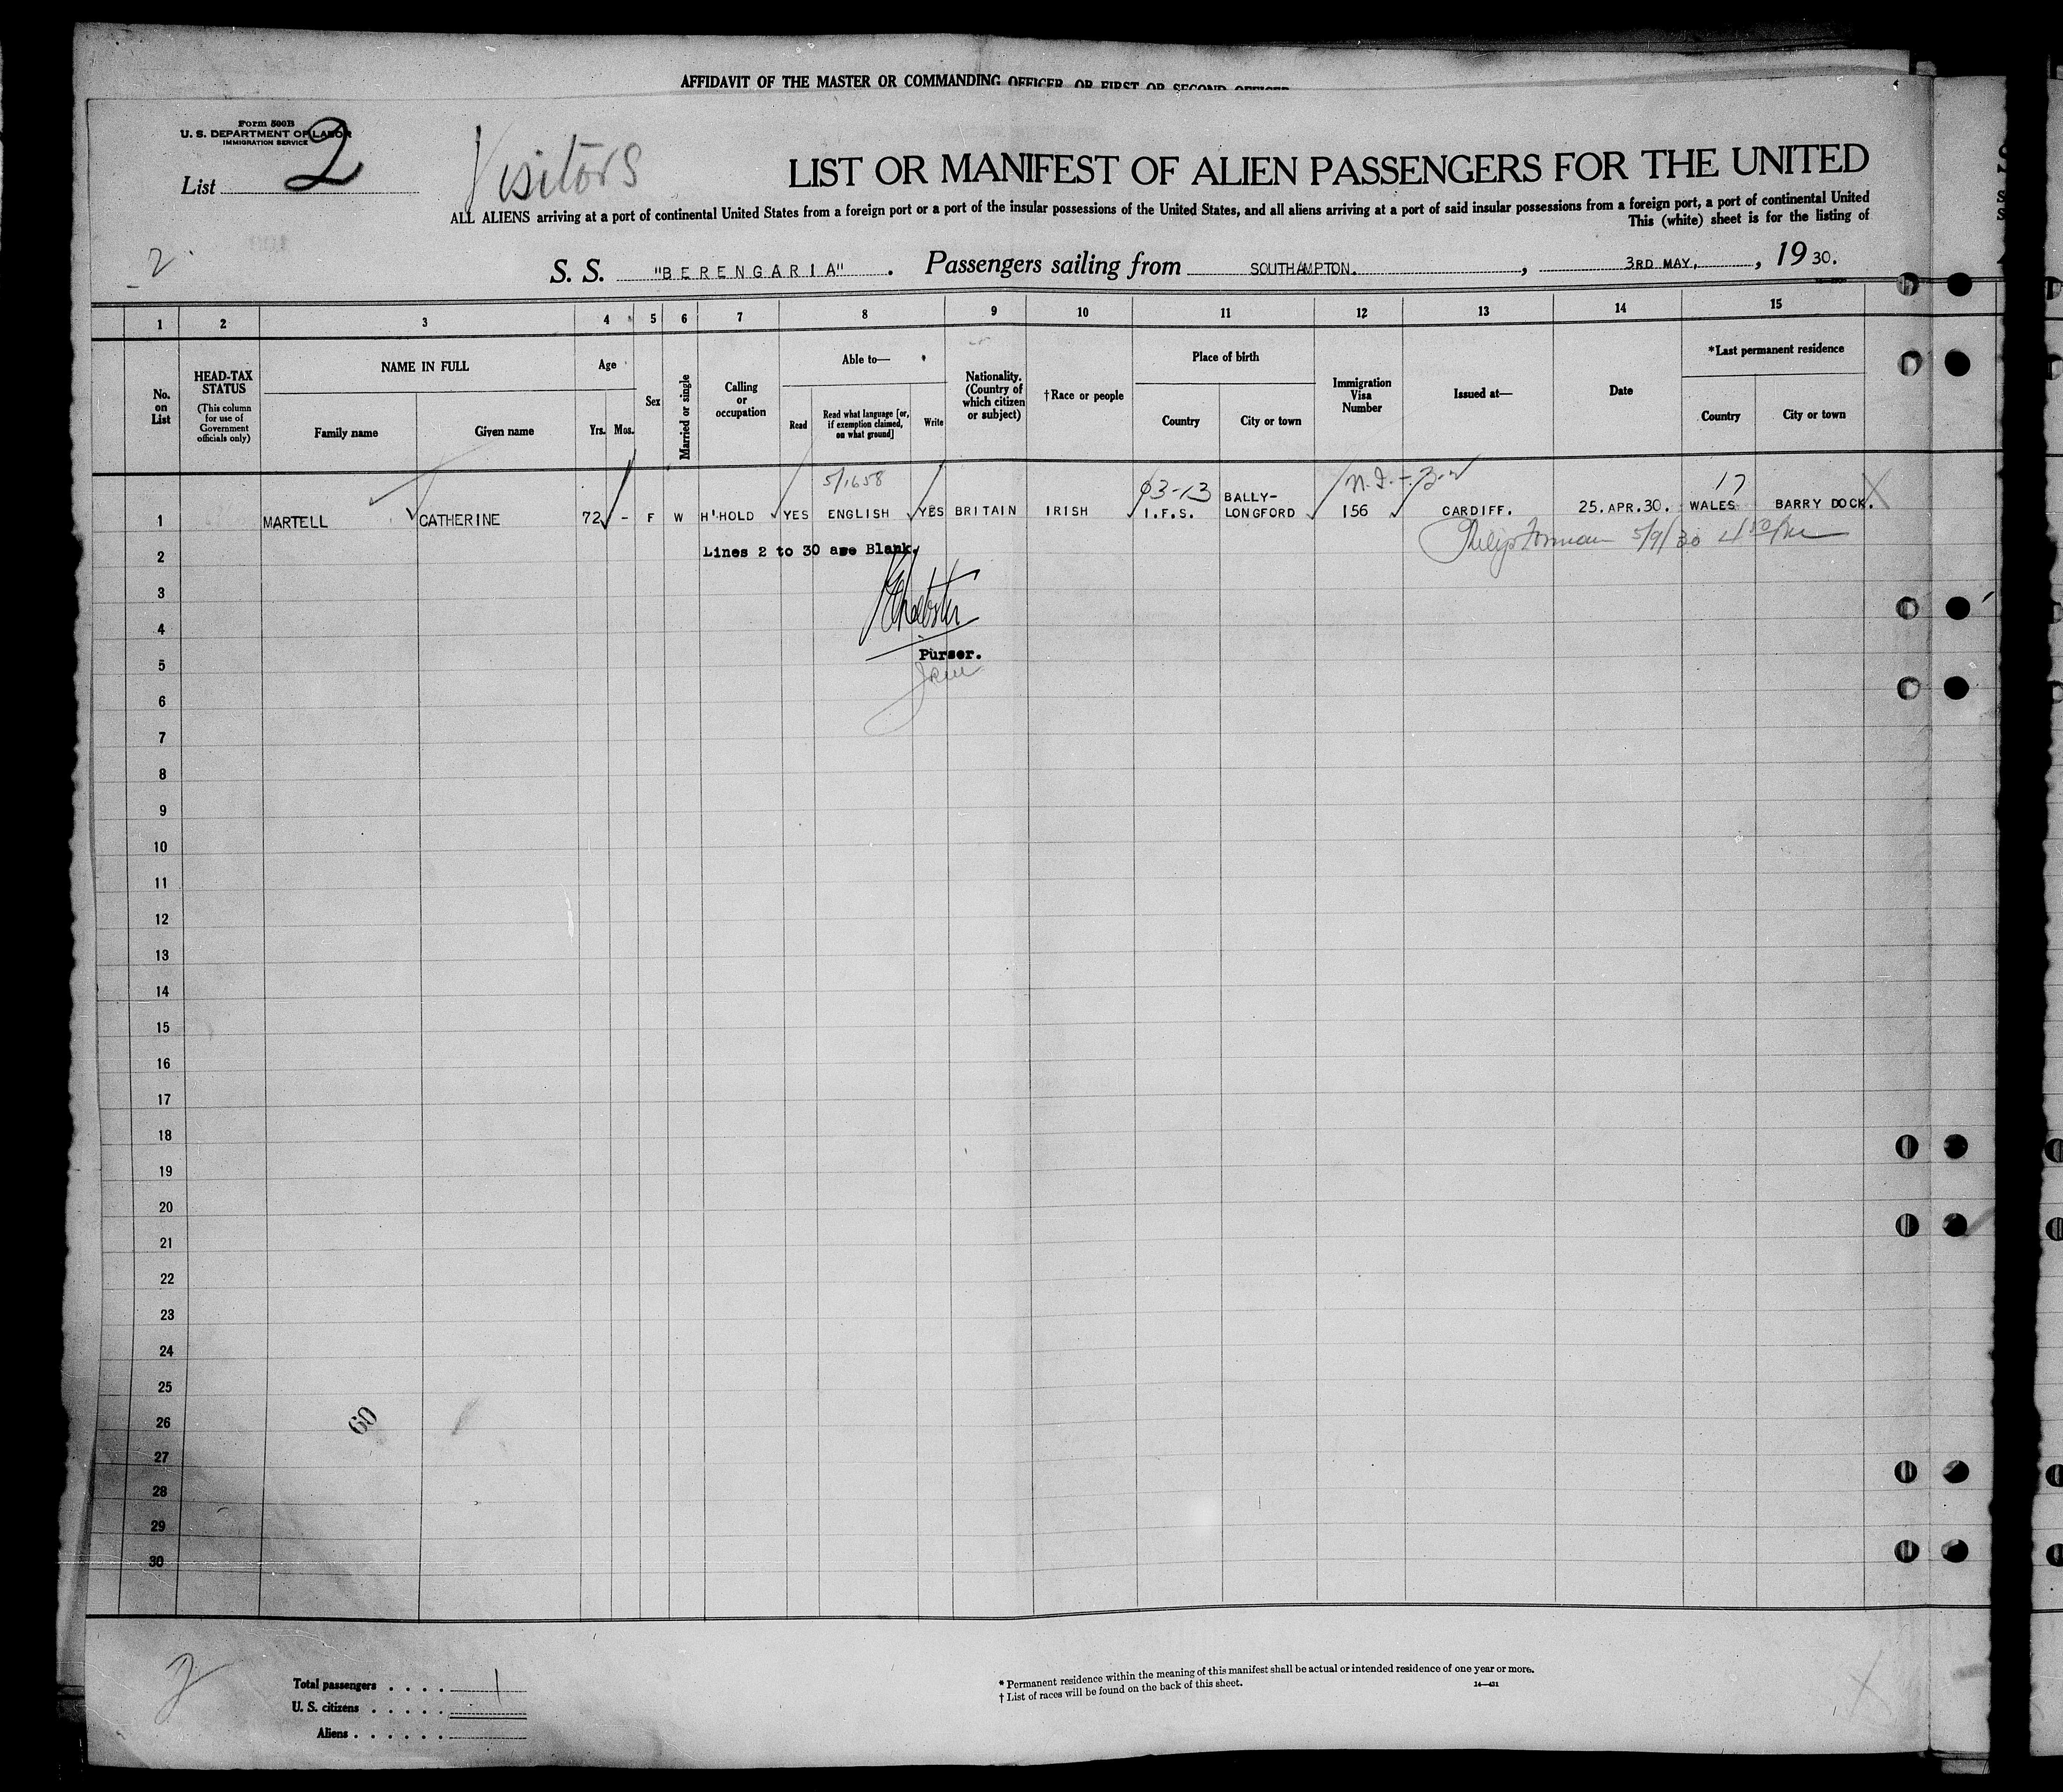 AFFIDAVIT OF THE MASTER OR COMMANDING OFFICER OR FIRST OR SECOND OFFICER
Form 500B
U. S. DEPARTMENT OF LABOR
IMMIGRATION SERVICE
List 2
Visitors
LIST OR MANIFEST OF ALIEN PASSENGERS FOR THE UNITED
ALL ALIENS arriving at a port of continental United States from a foreign port or a port of the insular possessions of the United States, and all aliens arriving at a port of said insular possessions from a foreign port, a port of continental United
This (white) sheet is for the listing of
2
S. S. "BERENGARIA". Passengers sailing from SOUTHAMPTON. , 3RD MAY, , 19 30.
1 2 3 4 5 6 7 8 9 10 11 12 13 14 15
No. on List
HEAD-TAX STATUS
(This column for use of Government officials only)
NAME IN FULL
Family name
Given name
Age
Yrs. Mos.
Sex
Married or single
Calling or occupation
Able to—
Read
Read what language [or, if exemption claimed, on what ground]
Write
Nationality. (Country of which citizen or subject)
†Race or people
Place of birth
Country
City or town
Immigration Visa Number
Issued at—
Date
*Last permanent residence
Country
City or town
5/1658
17
1 MARTELL CATHERINE 72 - F W H'HOLD YES ENGLISH YES BRITAIN IRISH I.F.S. BALLY-LONGFORD 156 CARDIFF. 25.APR.30. WALES BARRY DOCK.
5/9/30
2 Lines 2 to 30 are Blank.
3
4
5 Purser.
6
7
8
9
10
11
12
13
14
15
16
17
18
19
20
21
22
23
24
25
26
60
27
28
29
30
2
Total passengers . . . . 1
U. S. citizens . . . . .
Aliens . . . . . .
* Permanent residence within the meaning of this manifest shall be actual or intended residence of one year or more.
† List of races will be found on the back of this sheet.
14—431